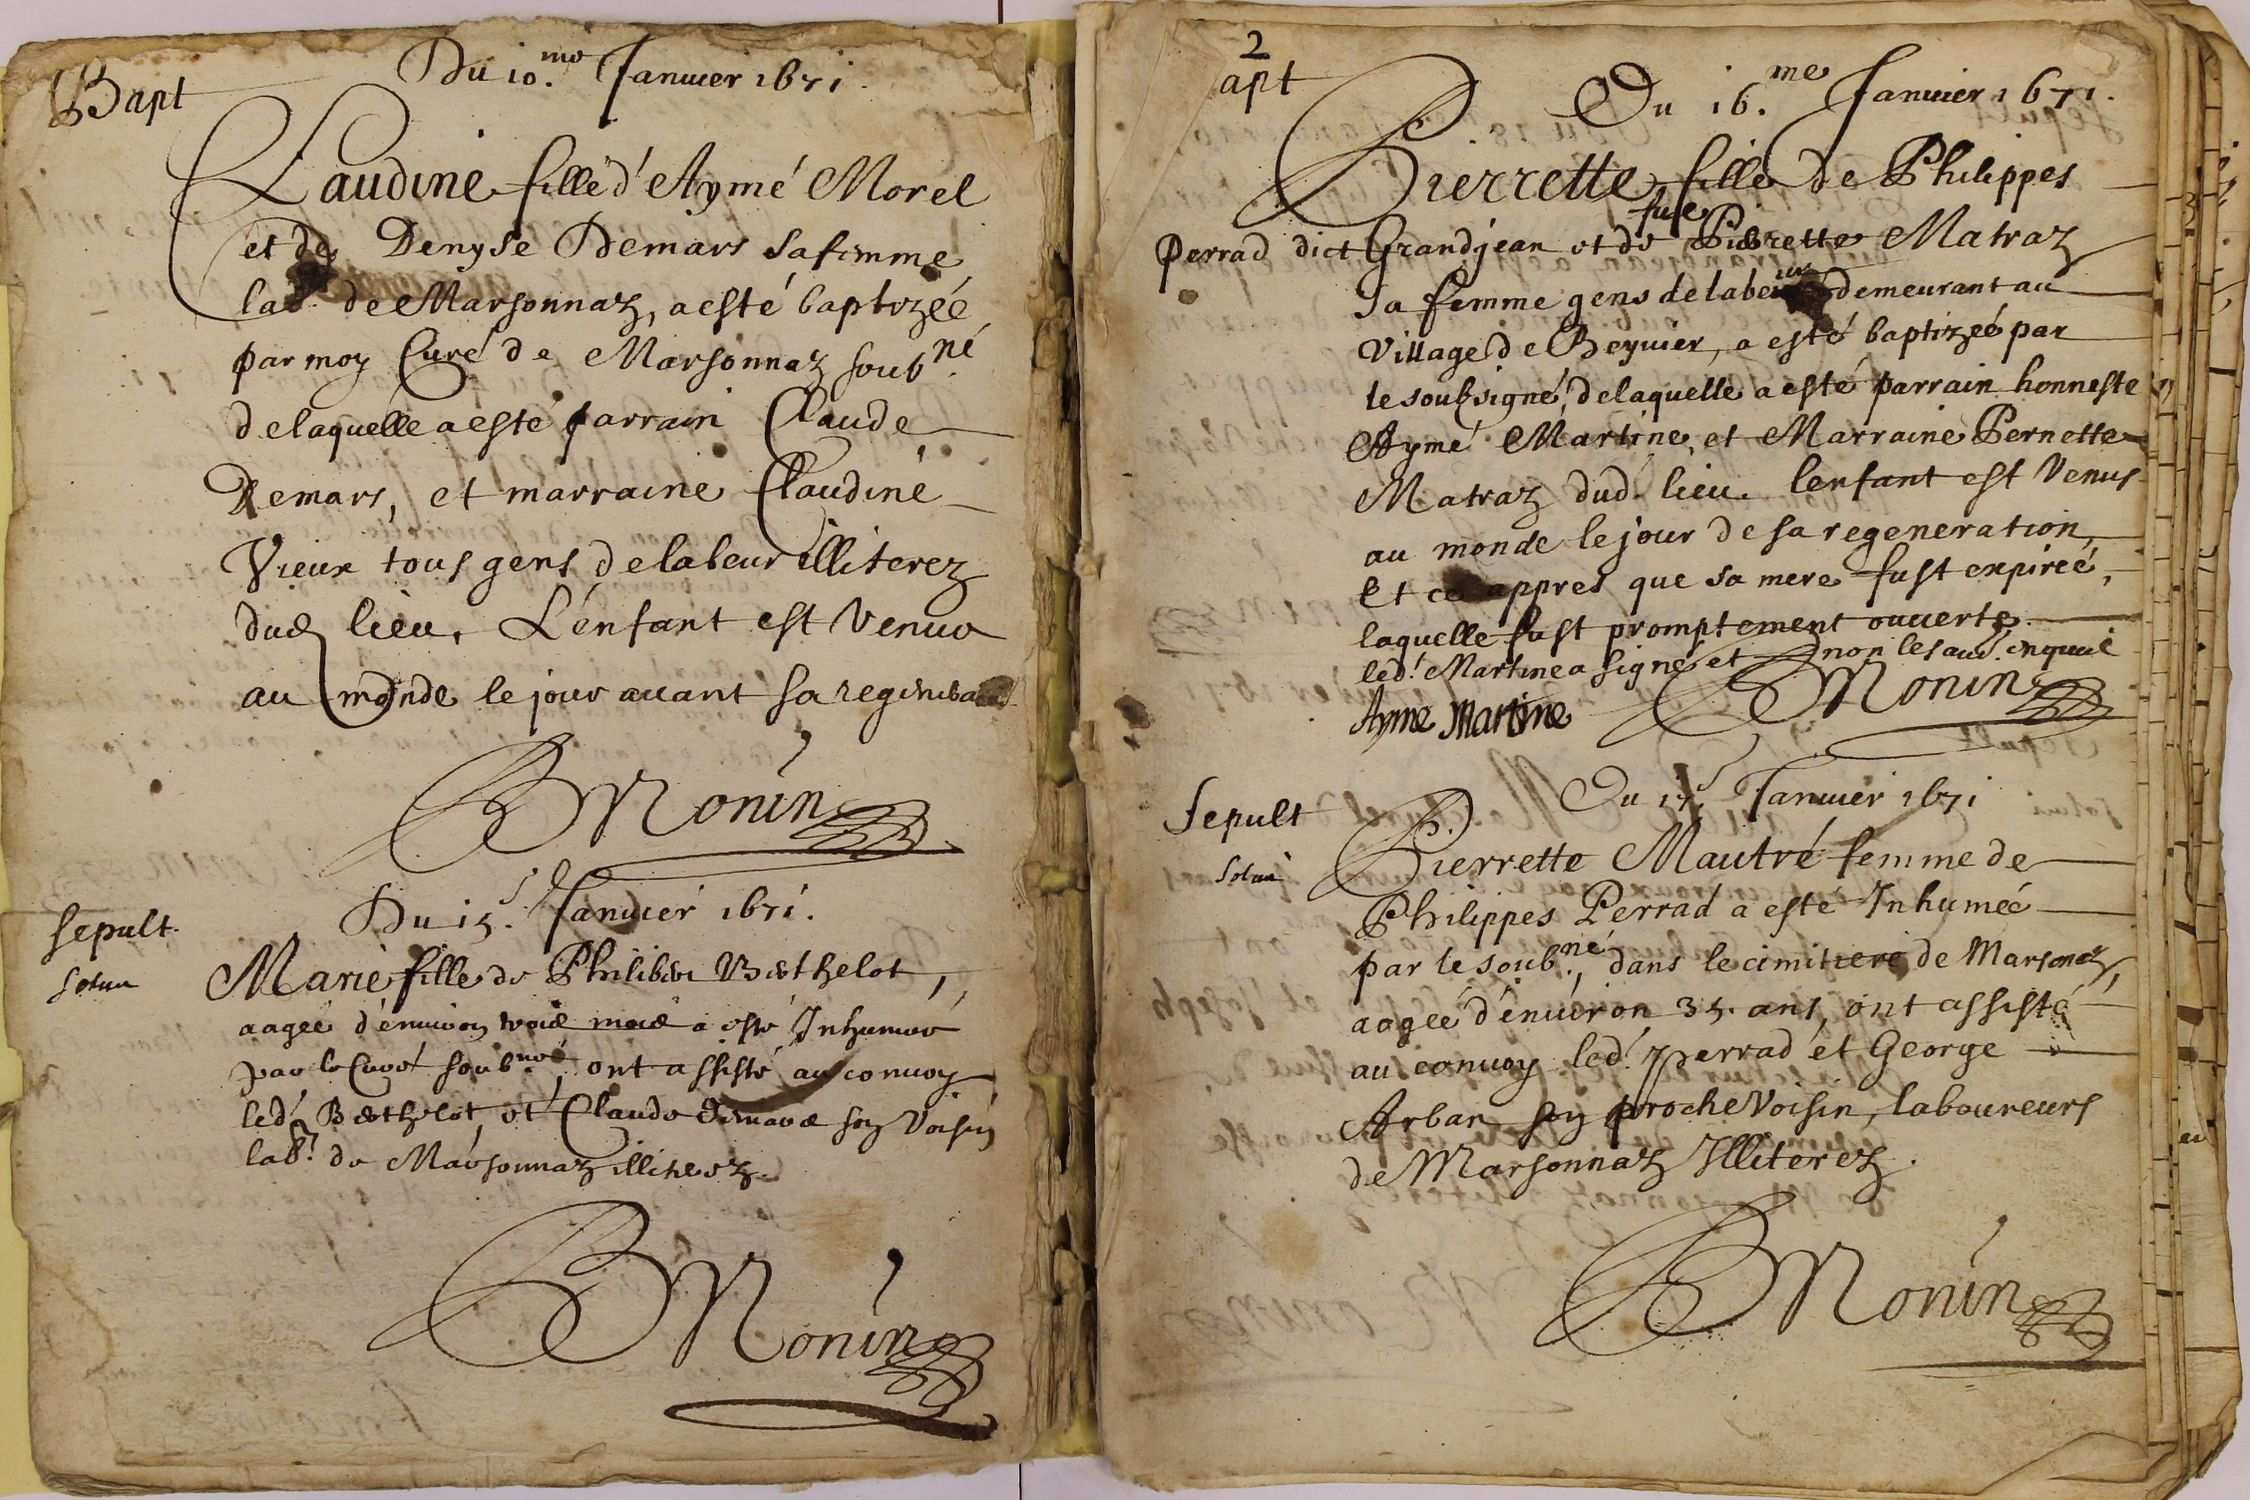 Bapt
Du 10.me Januier 1671.
Claudine fille d'Aymé Morel
et de Denyse Demars sa femme
lab. de Marsonnaz, a esté baptizée
par moy Curé de Marsonnaz soub.né
de laquelle a esté parrain Claude
Demars, et marraine Claudine
Vieux tous gens de labeur illiterez
dud lieu. L'enfant est venue
au monde le jour auant sa
BMonin
Sepult.
Du 15. Januier 1671.
Marie fille de Philiber Berthelot,
aagée d'enuiron trois mois a esté Inhumée
par le Curé soub.né, ont assisté au conuoy
led. Berthelot, et Claude Demars son Voisin
lab.r de Marsonnaz illiterez.
BMonin
2
apt
Du 16.me Januier 1671.
Pierrette fille de Philippes
Perrad dict Grandjean et de fue Pierrette Matraz
sa femme gens de labeur demeurant au
Village de Beyuier, a esté baptizée par
le soubsigné, de laquelle a esté parrain honneste
Aymé Martine, et Marraine Pernette
Matraz dud. lieu. lenfant est Venus
au monde le jour de sa regeneration,
et ce appres que sa mere fust expirée,
laquelle fust promptement ouuerte.
led. Martine a signé et non les au. enquis
Ayme Martine
BMonin
Sepult
Du 17. Januier 1671
Pierrette Mautré femme de
Philippes Perrad a esté Inhumée
par le soub.né, dans le cimitiere de Marsonaz,
aagée d'enuiron 35. ans, ont assisté
au conuoy led. Perrad et George
Arban son proche Voisin, laboureurs
de Marsonnaz Illiterez.
BMonin